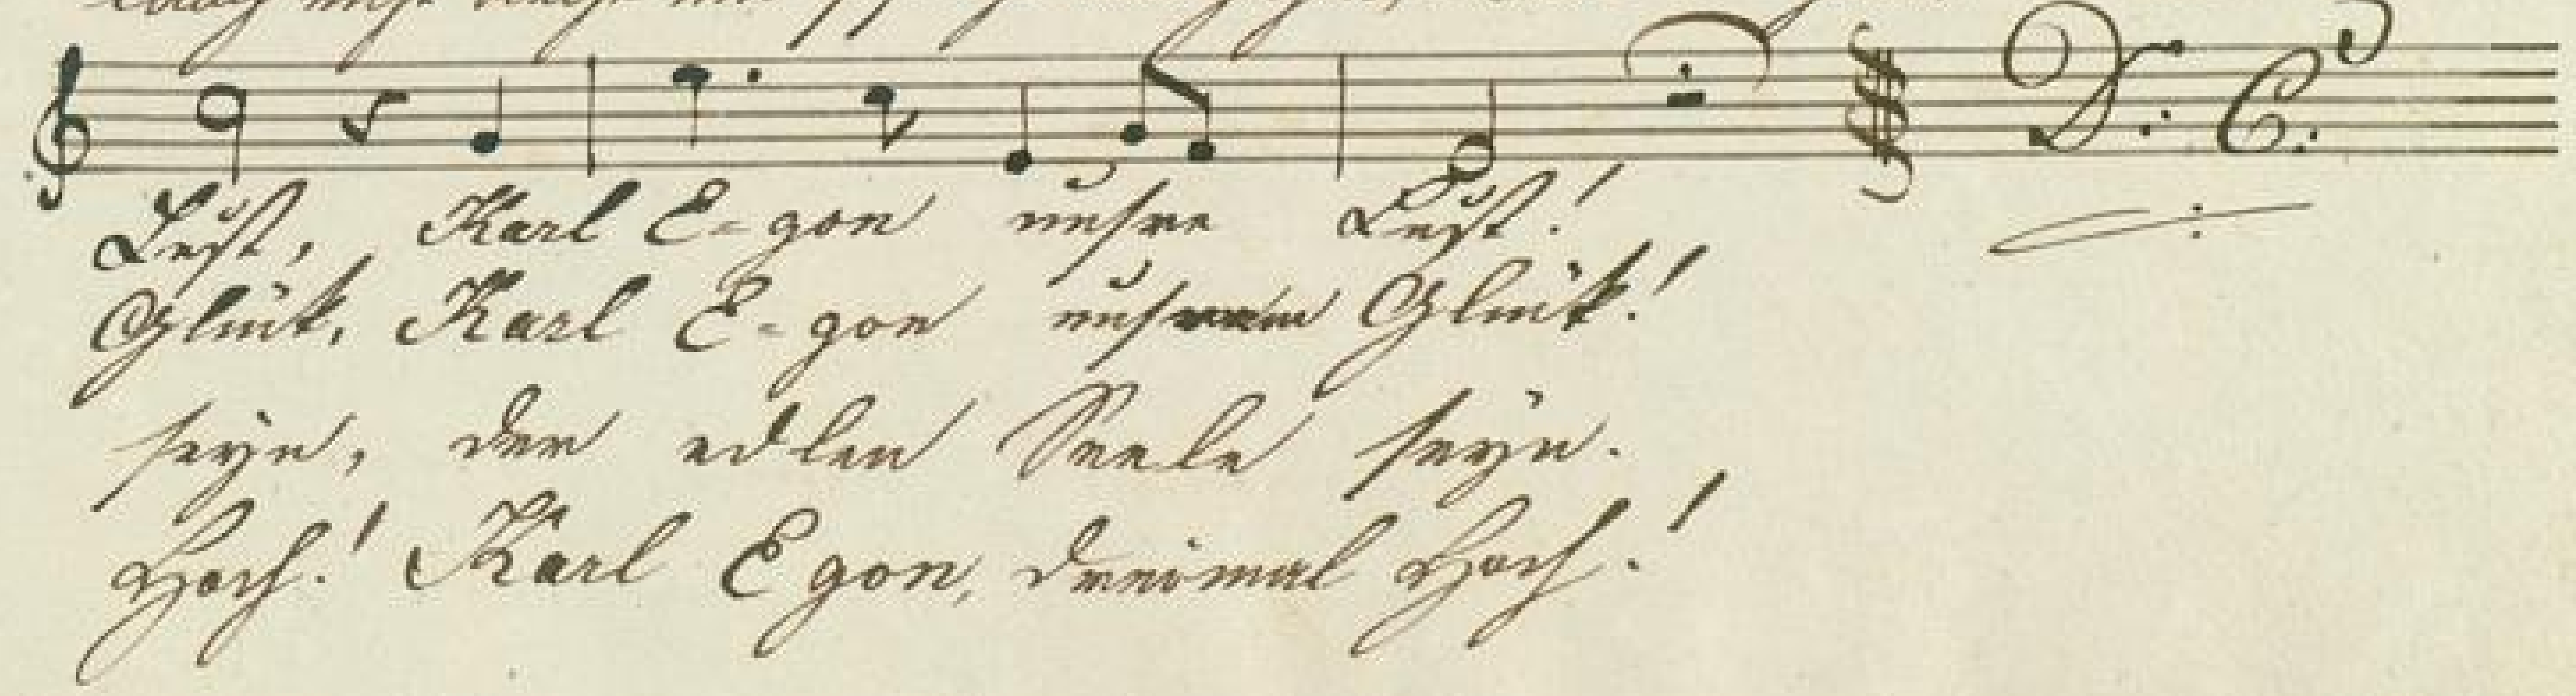 D: C:
Lust, Karl E-gon unsre Lust!
Glük, Karl E-gon unser Glük!
seÿn, der edlen Seele seÿn.
Hoch! Karl Egon, dreimal Hoch!